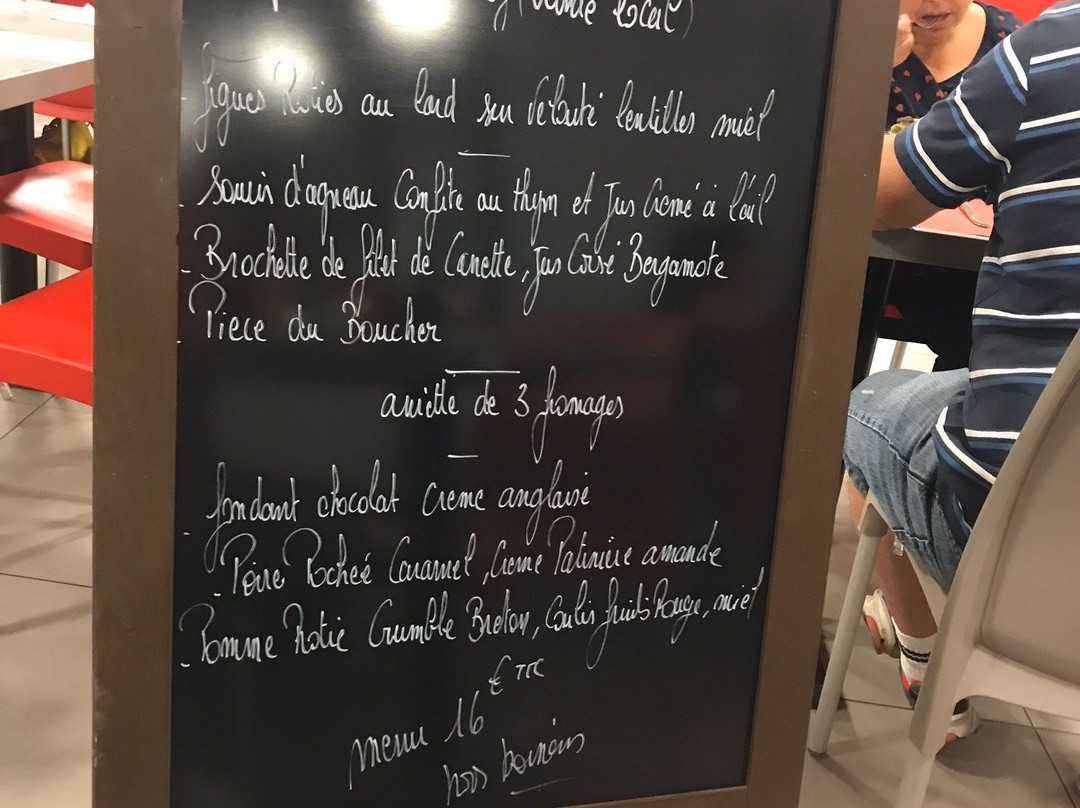 (viande local)
- figues Roties au lard sur Velouté lentilles miel
- Souris d'agneau Confite au thym et Jus Crémé à l'ail
- Brochette de filet de Canette, Jus Corsé Bergamote
- Pièce du Boucher
assiette de 3 fromages
- fondant chocolat Creme anglaise
- Poire Pochée Caramel, Creme Patissière amande
- Pomme Rotie Crumble Breton, Coulis fruits Rouge, miel
menu 16 € TTC
hors boissons